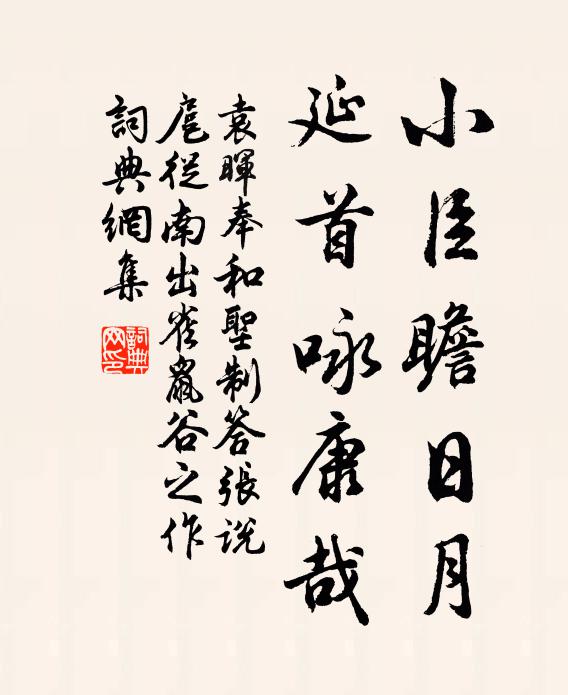 小臣瞻日月
延首咏康哉
袁暉奉和聖制答張説
扈從南出雀鼠谷之作
詞典網集
詞典
网印